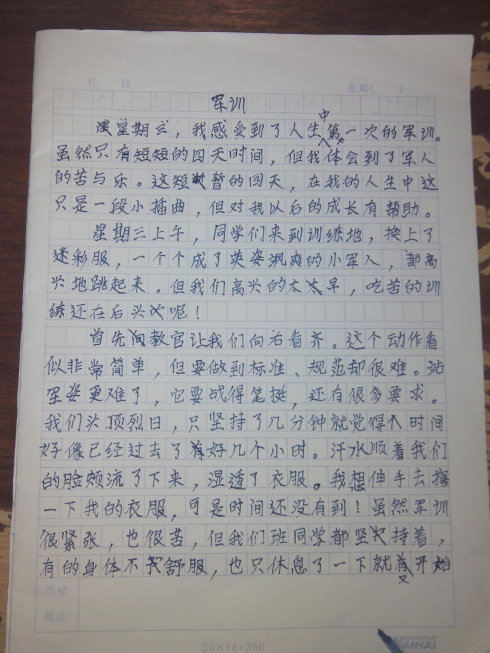 月 日 星期( )
军训
星期三，我感受到了人生中第一次的军训。
虽然只有短短的四天时间，但我体会到了军人
的苦与乐。这短暂的四天，在我的人生中这
只是一段小插曲，但对我以后的成长有帮助。
星期三上午，同学们来到训练地，换上了
迷彩服，一个个成了英姿飒爽的小军人，都高
兴地跳起来。但我们高兴的太早，吃苦的训
练还在后头呢！
首先教官让我们向右看齐。这个动作看
似非常简单，但要做到标准、规范却很难。站
军姿更难了，它要战得笔挺，还有很多要求。
我们头顶烈日，只坚持了几分钟就觉得时间
好像已经过去了好几个小时。汗水顺着我们
的脸颊流了下来，湿透了衣服。我想伸手去
一下我的衣服，可是时间还没有到！虽然军训
很紧张，也很苦，但我们班同学都坚持着，
有的身体不舒服，也只休息了一下就又开始
批注
20×18=360